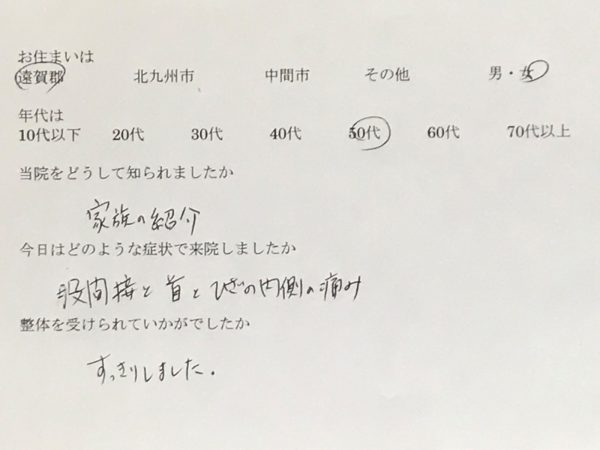 お住まいは
遠賀郡 北九州市 中間市 その他 男・女
年代は
10代以下 20代 30代 40代 50代 60代 70代以上
当院をどうして知られましたか
家族の紹介
今日はどのような症状で来院しましたか
股間接と首とひざの内側の痛み
整体を受けられていかがでしたか
すっきりしました。